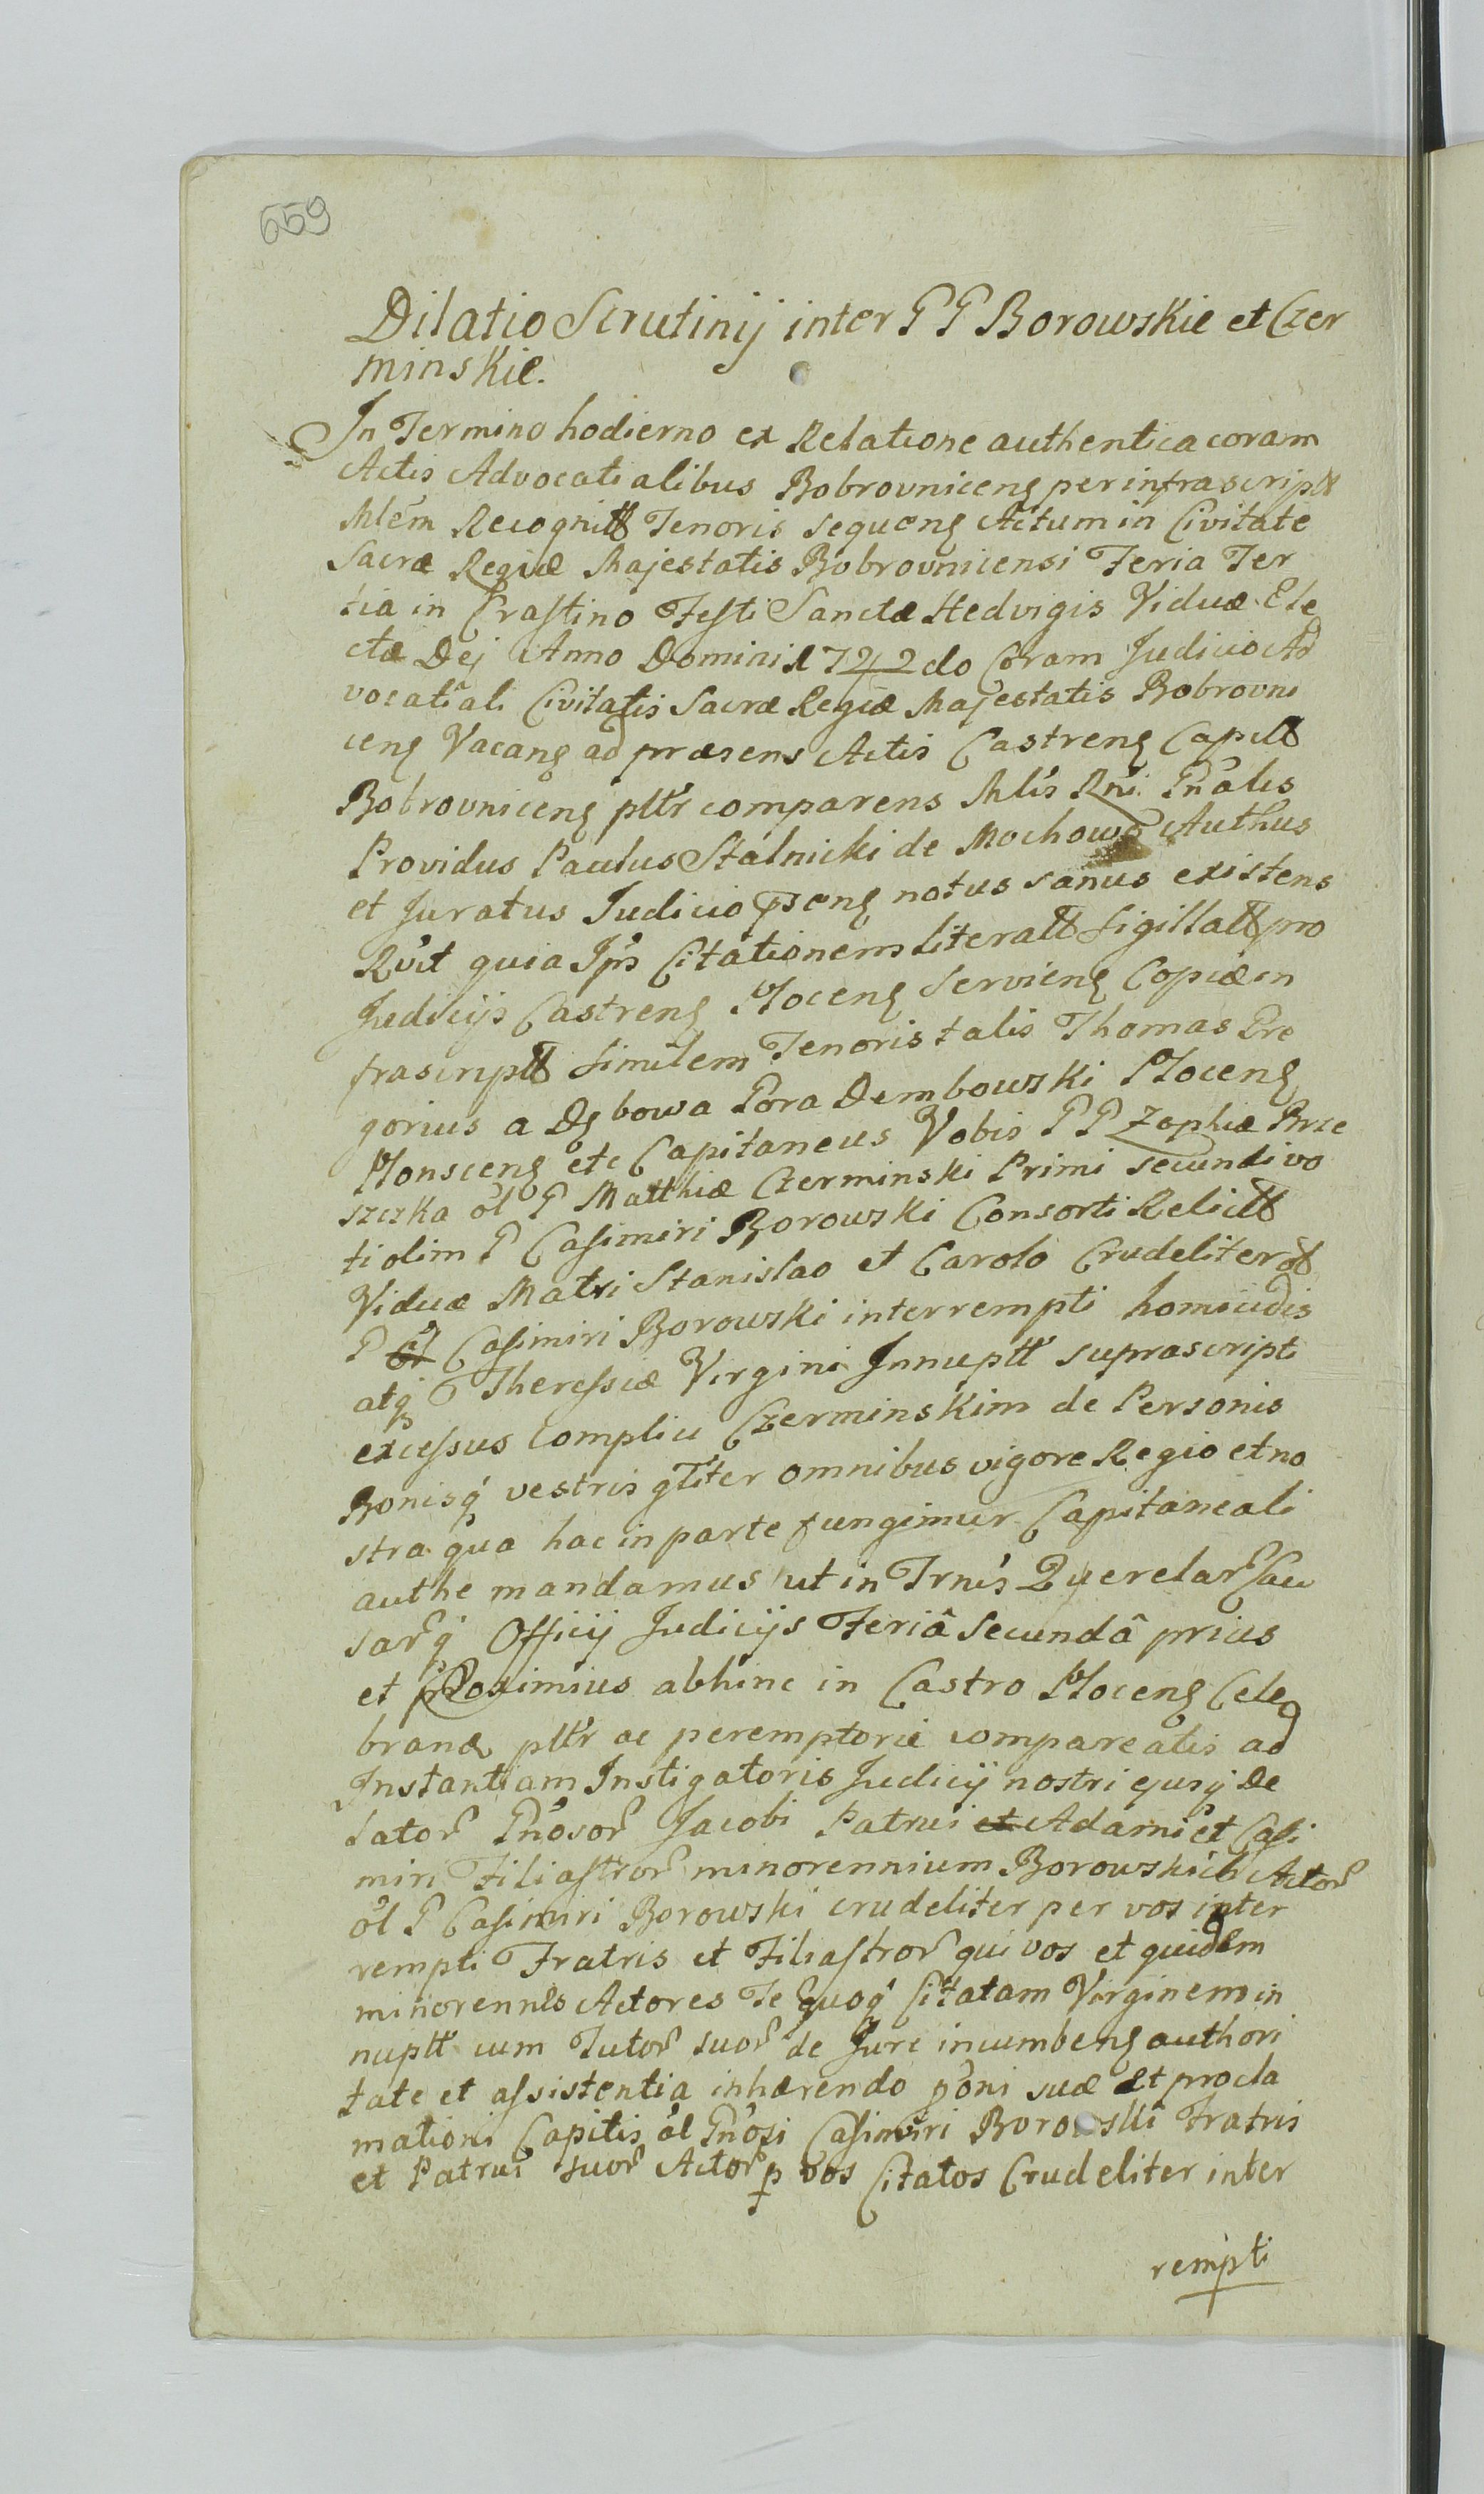 659
Dilatio Scrutinij inter P P Borowskie et Czer
minskie.
In Termino hodierno ex Relatione authentica coram
Actis Advocatialibus Bobrovniceng per infrascriptt
Mlem Recognitt Tenoris sequeng Actum in Civitate
Sacræ Regiæ Majestatis Bobrovnicensi Feria Ter
tia in Crastino Festi Sanctæ Hedvigis Viduæ Ele
ctæ Dej Anno Domini 1722do Coram Judicio Ad
vocatiali Civitatis Sacræ Regiæ Majestatis Bobrovni
ceng Vacang ad præsens Actis Castreng Capitt
Bobrovniceng pltr comparens Mlis Rni Gnalis
Providus Paulus Stalnicki de Mochowo Authus
et Juratus Judicio pseng notus sanus existens
Rvit quia Ips Citationem literatt sigillatt pro
Judicijs Castreng Ploceng Servieng Copiæ in
frascriptt similem Tenoris talis Thomas Gre
gorius a Dębowa Gora Dembowski Ploceng
Plonsceng etc Capitaneus Vobis P P Zophiæ Brze
szczka ol P Matthiæ Czerminski Primi secundi vo
ti olim P Casimiri Borowski Consorti Relictt
Viduæ Matri Stanislao et Carolo Crudeliter ol
P ol Casimiri Borowski interrempti homicidis
atq Theressiæ Virgini Innuptt suprascripti
excessus Complici Czerminskim de Personis
Bonisq vestris gliter omnibus vigore Regio et no
stra qua hac in parte fungimur Capitaneali
authe mandamus ut in Trnis Querelar Cau
sarq Officij Judicijs Feriâ Secundâ prius
et proximius abhinc in Castro Ploceng Cele
brand pltr ac peremptorie compareatis ad
Instantiam Instigatoris Judicij nostri ejusq De
lator Gnosor Jacobi Patrui et Adami et Casi
miri Filiastror minorennium Borowskich Actor
ol P Casimiri Borowski crudeliter per vos inter
rempti Fratris et Filiastror qui vos et quidem
minorennes Actores Te quoq Citatam Virginem in
nuptt cum Tutor suor de Jure incumbeng authori
tate et assistentia inhærendo poni suæ et procla
mationi Capitis ol Gnosi Casimiri Borowski Fratris
et Patrui suor Actor p vos Citatos Crudeliter inter
rempti